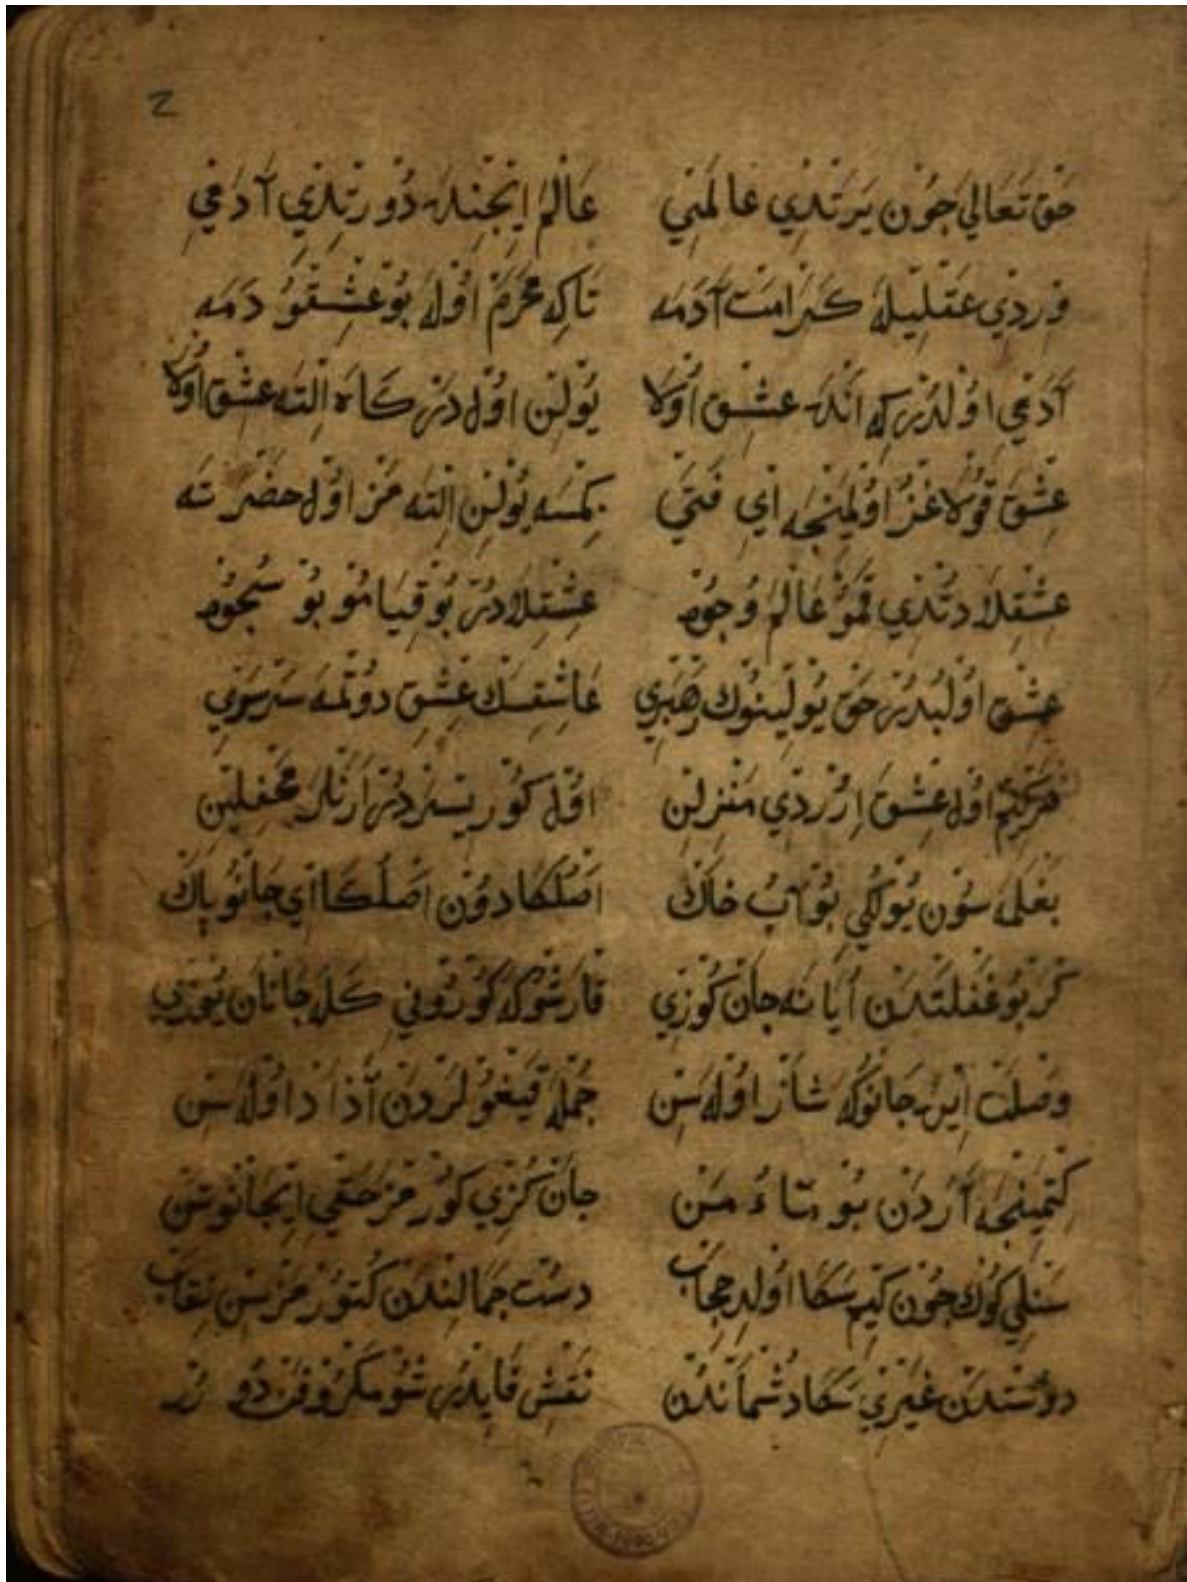 2
حَق تَعَالٰي جُون يَرَتْدِي عَالَمِي عَالَمْ اِيجِنْدَه دُورَتْدِي آدَمِي
وِرْدِي عَقْلِيلَه كَرَامَت آدَمَه تَاكِه مَحْرَمْ اُولَه بُو عِشْقُو دَمَه
آدَمِي اُولْدُرْ كِه اَنْدَه عِشْق اُولَا يُولِن اُول دَرْكَاه اِلْتَه عِشْق اُولَا
عِشْق قُولَاغُز اُولْمَيِنْجَه اَي فَتَي كِمْسَه يُولِن اِلْتَه مَز اُول حَضْرَتَه
عِشْقِلَا دُتْدِي قَمُو عَالَمْ وُجُود عِشْقِلَادُر بُو قِيَامُو بُو سُجُود
عِشْق اُولُبْدُر حَق يُولِينُوك رَهْبَرِي عَاشِقِسَك عِشْق دُوتْمَه سَرْسَرِي
هَرْكِيم اُول عِشْق اِرُرْدِي مَنْزِلِن اُول كُورِيسَرْدُر اَرَنْلَر مَحْفِلِين
بَغْلَمَه سُون يُولُكِي بُو آبُ خَاك اَصْلُكَا دُون اَصْلُكَا اَي جَانُ پَاك
كَر بُو غَفْلَتْدَن اُيَانَه جَان كُوزِي قَارْشُوكَه كُورُونِي كَلَه جَانَان يُوزِي
وَصْلَت اِيرَه جَانُوكَه شَاد اُولَه سِن جُمْلَه قَيْغُولَرْدَن آزَاد اُولَه سِن
كِتْمَيِنْجَه آرَدَن بُو مَا وُ مَن جَان كُزِي كُورْمَز حَقِي اِيجَانُ تَن
سَنْلِكُوك جُون كِيم سَكَا اُولْدِ حِجَاب دُسْت جَمَالِنْدَن كُتُورْمَزْسِن نِقَاب
دُوسْتْدَن غَيْرِي سَكَا دُشْمَانْدُر نَقْش فَانِيدُر شُو مَكْرُ و فَنْدُر